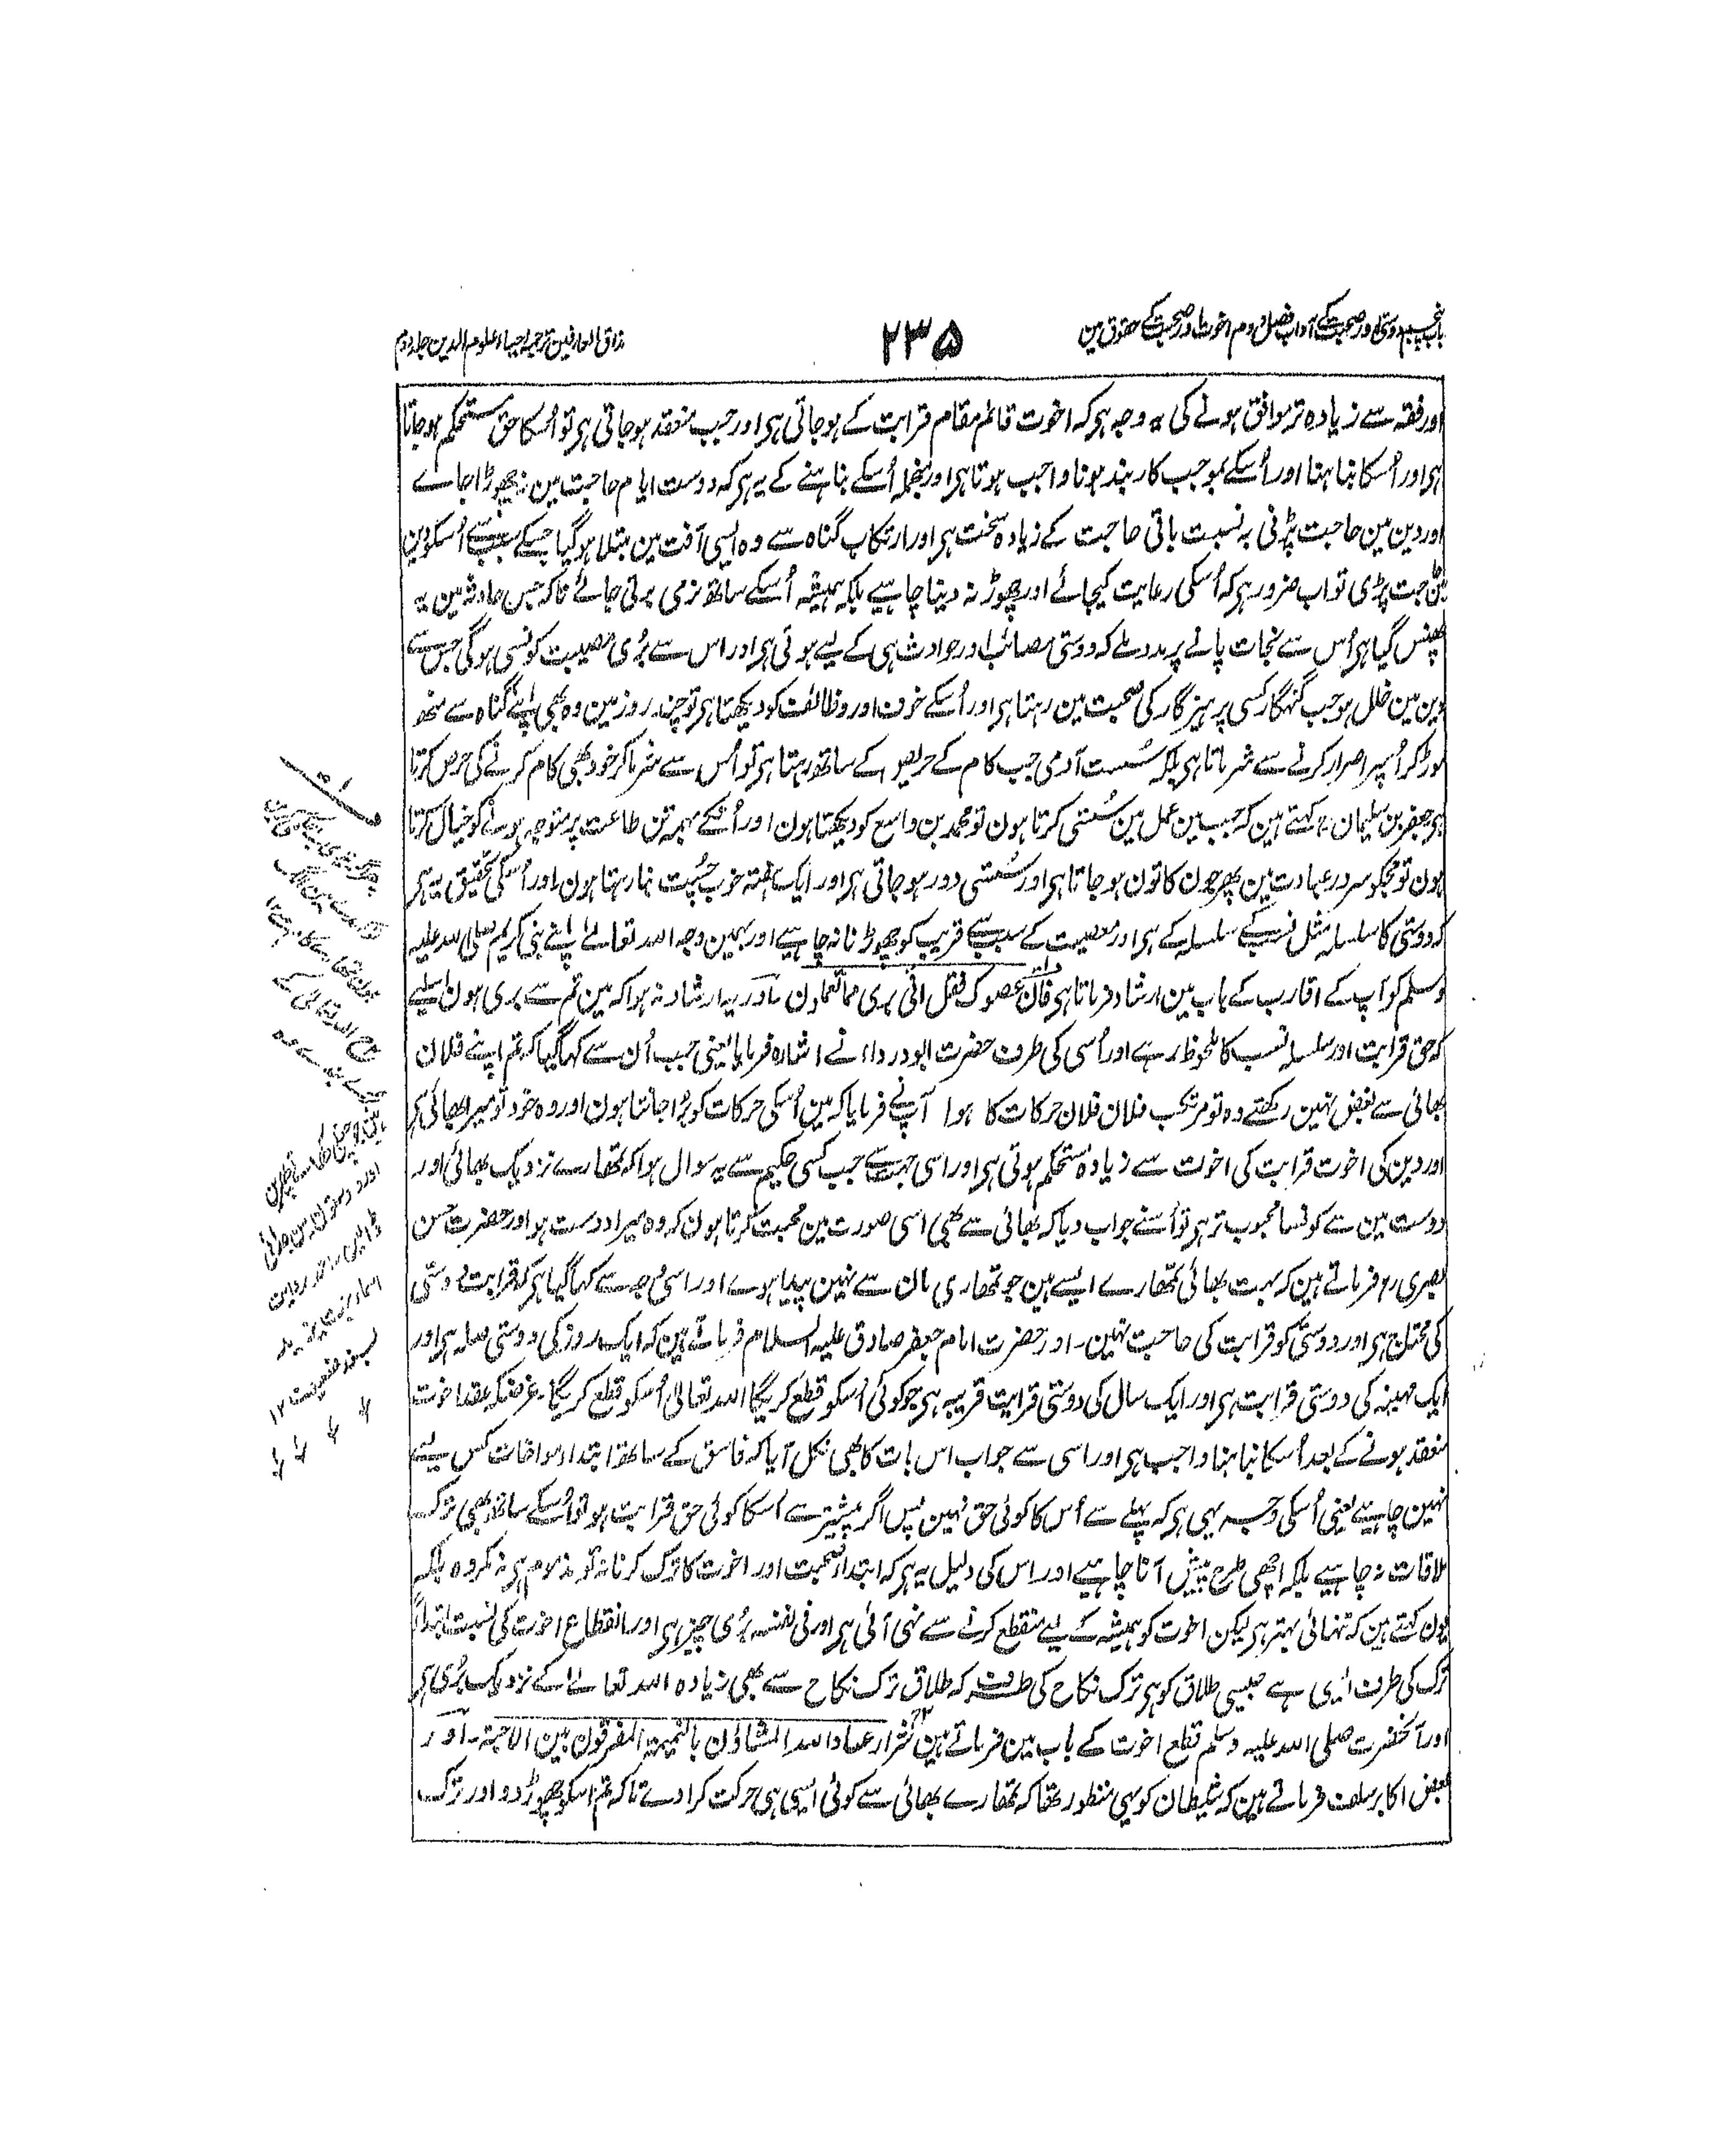 باب پنجم دوستی اور صحبت کے آداب فصل دوم اخوت اور صحبت کے حقوق مین
۲۳۵
مذاق العارفین ترجمہ احیاء علوم الدین جلد دوم
اور فقہ سے زیادہ تر موافق ہونے کی یہ وجہ ہی کہ اخوت قائم مقام قرابت کے ہو جاتی ہی اور جب منعقد ہو جاتی ہی تو اُسکا حق مستحکم ہو جاتا
ہی اور اُسکا نباہنا اور اُسکے بموجب کاربند ہونا واجب ہوتا ہی اور منجملہ اُسکے نباہنے کے یہ ہی کہ دوست ایام حاجت مین نچھوڑا جاے
اور دین مین حاجت پڑنی بہ نسبت باقی حاجت کے زیادہ سخت ہی اور ارتکاب گناہ سے وہ ایسی آفت مین مبتلا ہو گیا جسکے سبب سے اُسکو دین
مین حاجت پڑی تو اب ضرور ہی کہ اُسکی رعایت کیجائے اور چھوڑ نہ دینا چاہیے بلکہ ہمیشہ اُسکے ساتھ نرمی برتی جائے تاکہ جس حادثہ مین یہ
پھنس گیا ہی اُس سے نجات پانے پر مدد ملے کہ دوستی مصائب اور حوادث ہی کے لیے ہوتی ہی اور اس سے بُری مصیبت کونسی ہو گی جس سے
دین مین خلل ہو جب گنہگار کسی پرہیزگار کی صحبت مین رہتا ہی اور اُسکے خوف اور وظائف کو دیکھتا ہی تو چند روز مین وہ بھی اپنے گناہ سے منھ
موڑ کر اُسپر اصرار کرنے سے شرماتا ہی بلکہ سُست آدمی جب کام کے حریصوں کے ساتھ رہتا ہی تو اُس سے شرما کر خود بھی کام کرنے کی حرص کرتا
ہی جعفر بن سلیمان رح کہتے ہین کہ جب مین عمل مین سُستی کرتا ہون تو محمد بن واسع کو دیکھتا ہون اور اُنکے ہمہ تن طاعت پر متوجہ ہونے کو خیال کرتا
ہون تو مجکو سرور عبادت مین پھر جون کا تون ہو جاتا ہی اور سُستی دور ہو جاتی ہی اور ایک ہفتہ خوب چُست بنا رہتا ہون اور اُسکی تحقیق یہ ہی
کہ دوستی کا سلسلہ مثل نسب کے سلسلہ کے ہی اور معصیت کے سبب سے قریب کو چھوڑنا نہ چاہیے اور بہمین وجہ اللہ تعالے اپنے نبی کریم صلی اللہ علیہ
وسلم کو آپ کے اقارب کے باب مین ارشاد فرماتا ہی فَاِن عصوک فقل انی بری مما تعملون اور یہ ارشاد نہ ہوا کہ مین تم سے بری ہون اسلیے
کہ حق قرابت اور سلسلہ نسب کا ملحوظ رہے اور اُسی کی طرف حضرت ابو درداء نے اشارہ فرمایا یعنی جب اُن سے کہا گیا کہ تم اپنے فلان
بھائی سے بغض نہین رکھتے وہ تو مرتکب فلان فلان حرکات کا ہوا آپنے فرمایا کہ مین اُسکی حرکات کو بُرا جانتا ہون اور وہ خود تو میرا بھائی ہی
اور دین کی اخوت قرابت کی اخوت سے زیادہ مستحکم ہوتی ہی اور اسی جہت سے جب کسی حکیم سے یہ سوال ہوا کہ تمھارے نزدیک بھائی اور
دوست مین سے کونسا محبوب تر ہی تو اُسنے جواب دیا کہ بھائی سے بھی اسی صورت مین محبت کرتا ہون کہ وہ میرا دوست ہو اور حضرت حسن
بصری رہ فرماتے ہین کہ بہت بھائی تمھارے ایسے ہین جو تمھاری مان سے نہین پیدا ہوے اور اسی وجہ سے کہا گیا ہی کہ قرابت دوستی
کی محتاج ہی اور دوستی کو قرابت کی حاجت نہین۔ اور حضرت امام جعفر صادق علیہ السلام فرماتے ہین کہ ایک روز کی دوستی صلہ ہی اور
ایک مہینہ کی دوستی قرابت ہی اور ایک سال کی دوستی قرابت قریبہ ہی جو کوئی اُسکو قطع کریگا اللہ تعالی اُسکو قطع کریگا۔ غرضکہ عقد اخوت
منعقد ہونے کے بعد اُسکا نباہنا واجب ہی اور اسی سے جواب اس بات کا بھی نکل آیا کہ فاسق کے ساتھ ابتداءً مواخات کس لیے
نہین چاہیے یعنی اُسکی وجہ یہی ہی کہ پہلے سے اُس کا کوئی حق نہین پس اگر پیشتر سے اُسکا کوئی حق قرابت ہو تو اُسکے ساتھ بھی ترک
ملاقات نہ چاہیے بلکہ اچھی طرح پیش آنا چاہیے اور اس کی دلیل یہ ہی کہ ابتداءً صحبت اور اخوت کا ترک کرنا نہ تو مذموم ہی نہ مکروہ بلکہ
یون کہتے ہین کہ تنہائی بہتر ہی لیکن اخوت کو ہمیشہ کے لیے منقطع کرنے سے نہی آئی ہی اور فی نفسہ بُری چیز ہی اور انقطاع اخوت کی نسبت ابتداءً
ترک کی طرف ایسی ہے جیسی طلاق کو ہی ترک نکاح کی طرف کہ طلاق ترک نکاح سے بھی زیادہ اللہ تعالےٰ کے نزدیک بُری ہی
اور آنحضرت صلی اللہ علیہ وسلم قطع اخوت کے باب مین فرماتے ہین شرار عباد اللہ المشاؤن بالنمیمۃ المفرقون بین الاحبۃ۔ اور
بعض اکابر سلف فرماتے ہین کہ شیطان کو یہی منظور تھا کہ تمھارے بھائی سے کوئی ایسی ہی حرکت کرا دے تاکہ تم اسکو چھوڑ دو اور ترک
اور دوستون مین جدائی
۱۲